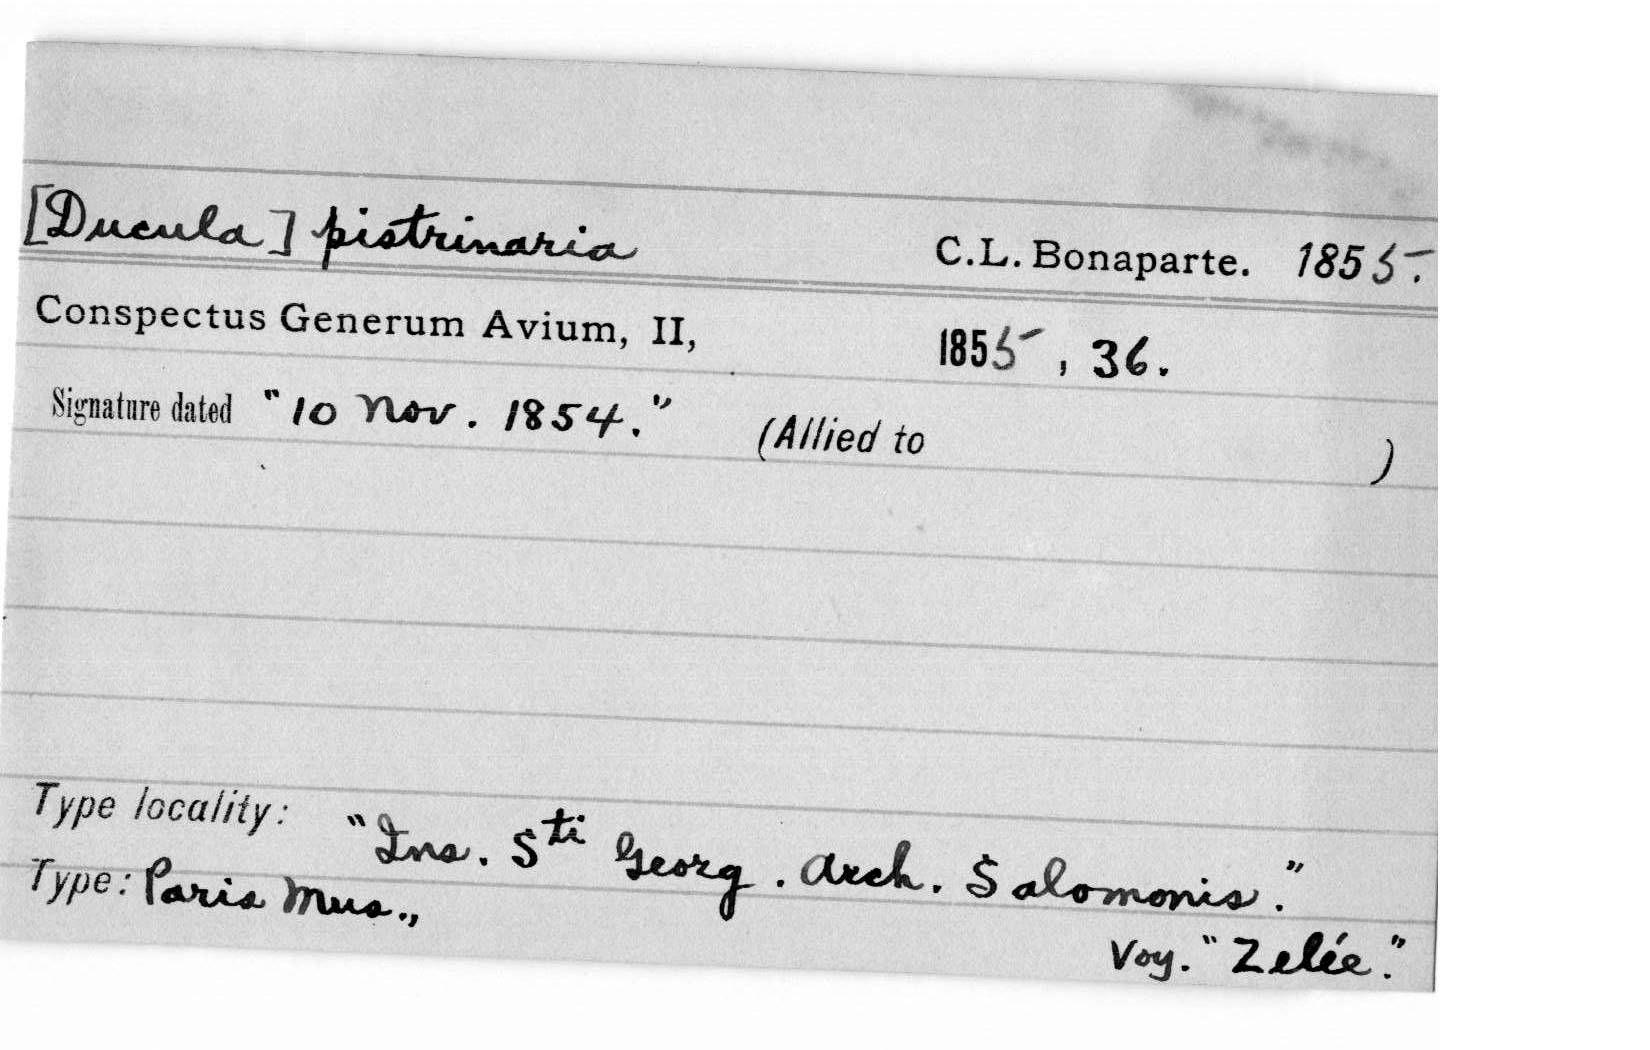 [Ducula] pistrinaria C.L. Bonaparte. 1855.
Conspectus Generum Avium, II, 1855, 36.
Signature dated "10 Nov. 1854." (Allied to )
Type locality: "Ins. Sti Georg. Arch. Salomonis."
Type: Paris Mus.,
Voy. "Zelée."